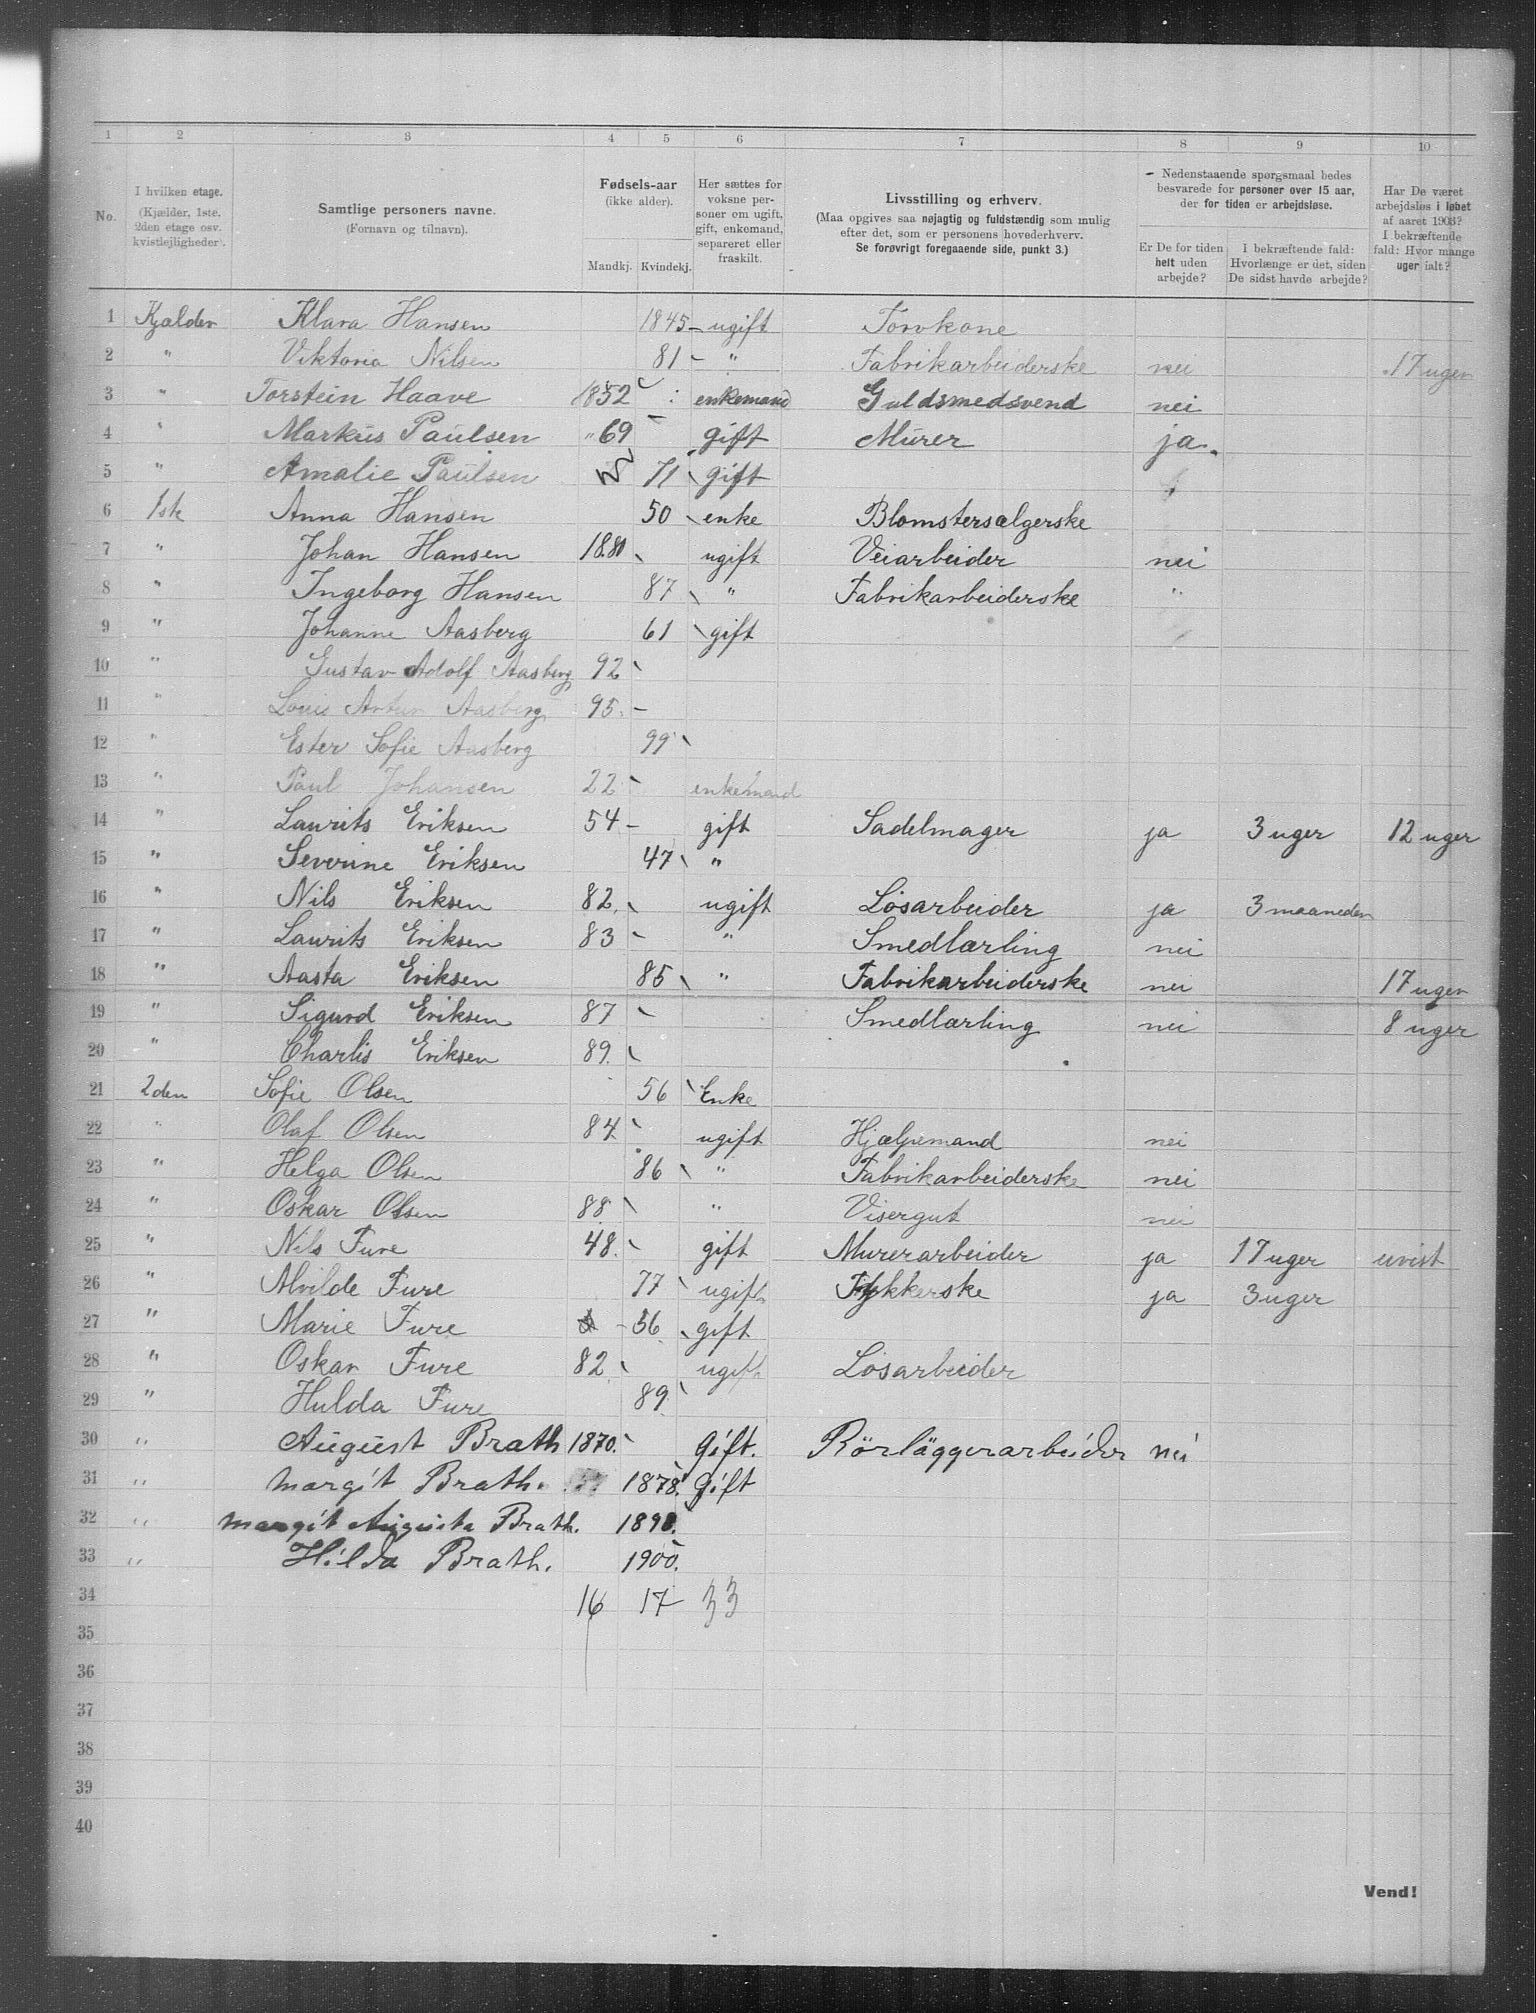 1 2 3 4 5 6 7 8 9 10
No. I hvilken etage. (Kjælder, 1ste. 2den etage osv. kvistlejligheder). Samtlige personers navne. (Fornavn og tilnavn). Fødsels-aar (ikke alder). Mandkj. Kvindekj. Her sættes for voksne personer om ugift, gift, enkemand, separeret eller fraskilt. Livsstilling og erhverv. (Maa opgives saa nøjagtig og fuldstændig som mulig efter det, som er personens hovederhverv. Se forøvrigt foregaaende side, punkt 3.) Nedenstaaende spørgsmaal bedes besvarede for personer over 15 aar, der for tiden er arbejdsløse. Er De for tiden helt uden arbejde? I bekræftende fald: Hvorlænge er det, siden De sidst havde arbejde? Har De været arbejdsløs i løbet af aaret 1903? I bekræftende fald: Hvor mange uger ialt?
1 Kjælder Klara Hansen 1845 ugift Torvkone
2 " Viktoria Nilsen 81 " Fabrikarbeiderske nei 17 uger
3 " Torstein Haave 1852 enkemand Guldsmedsvend nei
4 " Markus Paulsen " 69 gift Murer ja.
5 " Amalie Paulsen 71 gift
6 1ste Anna Hansen 50 enke Blomstersælgerske
7 " Johan Hansen 1880 ugift Veiarbeider nei
8 " Ingeborg Hansen 87 " Fabrikarbeiderske "
9 " Johanne Aasberg 61 gift
10 " Gustav Adolf Aasberg 92
11 " Louis Artur Aasberg 95
12 " Ester Sofie Aasberg 99
13 " Paul Johansen 22 enkemand
14 " Laurits Eriksen 54 gift Sadelmager ja 3 uger 12 uger
15 " Severine Eriksen 47 "
16 " Nils Eriksen 82 ugift Løsarbeider ja 3 maaneder
17 " Laurits Eriksen 83 " Smedlærling nei
18 " Aasta Eriksen 85 " Fabrikarbeiderske nei 17 uger
19 " Sigurd Eriksen 87 Smedlærling nei 8 uger
20 " Charlis Eriksen 89
21 2den Sofie Olsen 56 Enke
22 " Olaf Olsen 84 ugift Hjælpemand nei
23 " Helga Olsen 86 " Fabrikarbeiderske nei
24 " Oskar Olsen 88 " Visergut nei
25 " Nils Fure 48 gift Murerarbeider ja 17 uger uvist
26 " Alvilde Fure 77 ugift Trykkerske ja 3 uger
27 " Marie Fure 56 gift
28 " Oskar Fure 82 ugift Løsarbeider
29 " Hulda Fure 89
30 " August Brath 1870. Gift. Rörläggerarbeider nei
31 " Margit Brath. 1878. Gift
32 " Margit Augusta Brath. 1898.
33 " Hilda Brath. 1900.
34 16 17 33
35
36
37
38
39
40
Vend!